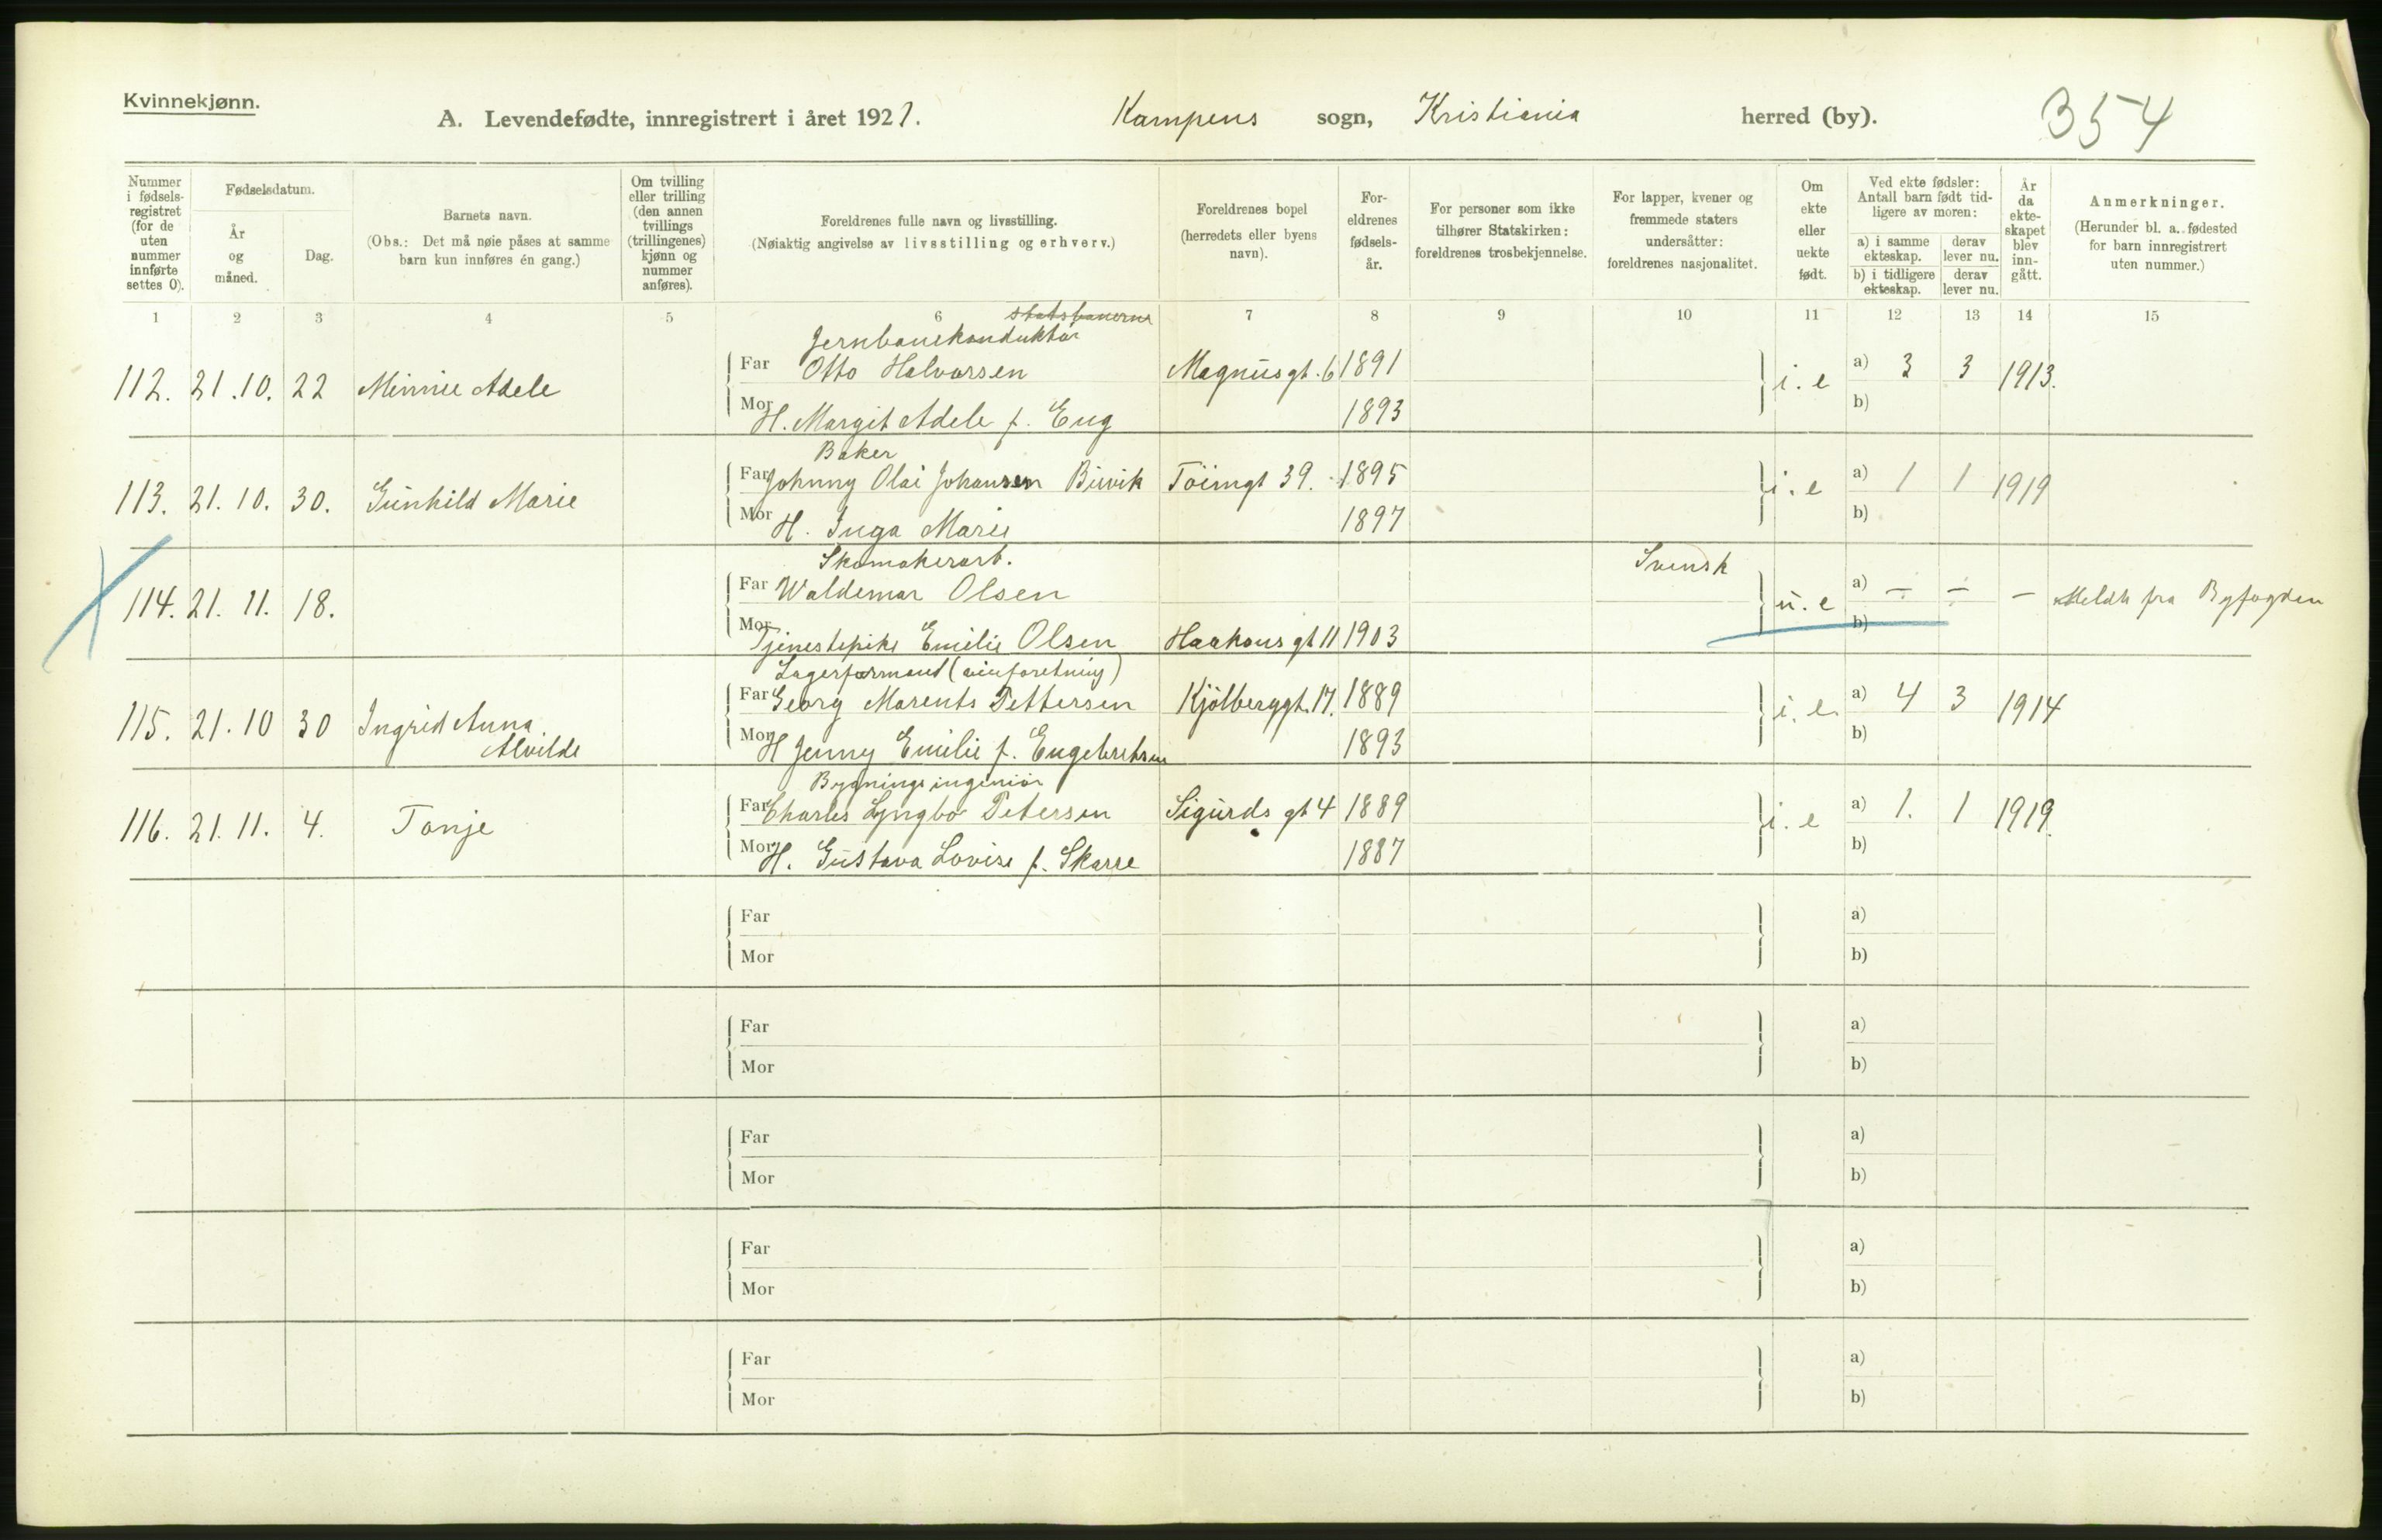 Kvinnekjønn.
A. Levendefødte, innregistrert i året 1921. Kampens sogn, Kristiania herred (by). 354
Nummer i fødselsregistret (for de uten nummer innførte settes 0).
Fødselsdatum.
År og måned.
Dag.
Barnets navn.
(Obs.: Det må nøie påses at samme barn kun innføres én gang.)
Om tvilling eller trilling (den annen tvillings (trillingenes) kjønn og nummer anføres).
Foreldrenes fulle navn og livsstilling.
(Nøiaktig angivelse av livsstilling og erhverv.)
Foreldrenes bopel (herredets eller byens navn).
Foreldrenes fødselsår.
For personer som ikke tilhører Statskirken: foreldrenes trosbekjennelse.
For lapper, kvener og fremmede staters undersåtter: foreldrenes nasjonalitet.
Om ekte eller uekte født.
Ved ekte fødsler: Antall barn født tidligere av moren:
a) i samme ekteskap. derav lever nu.
b) i tidligere ekteskap. derav lever nu.
År da ekteskapet blev inngått.
Anmerkninger.
(Herunder bl. a. fødested for barn innregistrert uten nummer.)
1 2 3 4 5 6 7 8 9 10 11 12 13 14 15
statsbanerne
Jernbanekonduktör
112. 21.10. 22 Minnie Adele Far Otto Halvorsen Magnusgt. 6 1891 i. e a) 3 3 1913.
Mor H. Margit Adele f. Eng 1893 b)
Baker
113. 21. 10. 30. Gunhild Marie Far Johnny Olai Johansen Birvik Töiengt 39. 1895 i. e a) 1 1 1919
Mor H. Inga Marie 1897 b)
Skomakerarb. Svensk
114. 21. 11. 18. Far Waldemar Olsen u. e a) — — — Meldt fra Byfogden
Mor Tjenestepike Emilie Olsen Haakons gt 11 1903 b)
Lagerformand (vinforetning)
115. 21. 10 30 Ingrid Anna Alvilde Far Georg Marents Pettersen Kjölberggt. 17. 1889 i. e. a) 4 3 1914
Mor H Jenny Emilie f. Engebretsen 1893 b)
Bygningsingeniör
116. 21. 11. 4. Tonje Far Charles Lyngbo Petersen Sigurds gt 4 1889 i. e a) 1. 1 1919.
Mor H. Gustava Lovise f. Skarre 1887 b)
Far a)
Mor b)
Far a)
Mor b)
Far a)
Mor b)
Far a)
Mor b)
Far a)
Mor b)